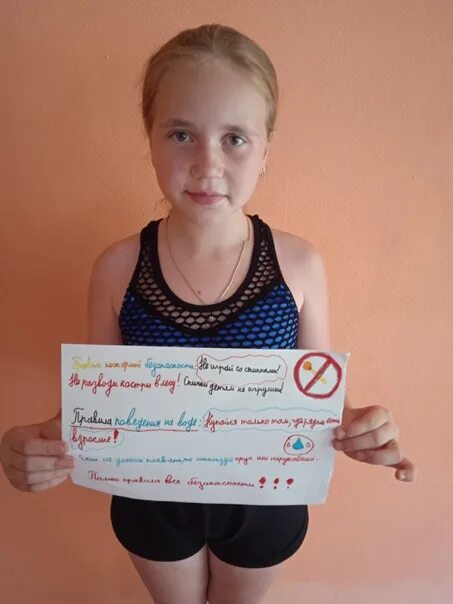 Правила пожарной безопасности: Не играй со спичками!
Не разводи костры в лесу! Спички детям не игрушка!
Правила поведения на воде: Купайся только там, где рядом есть
взрослые!
Если не умеешь плавать, то используй круг или нарукавники.
Помни правила все безопасности!!!